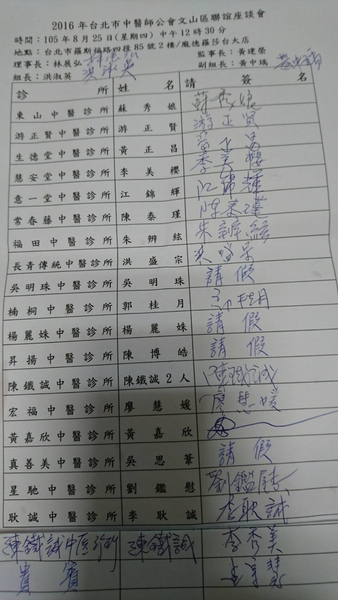 2016年台北市中醫師公會文山區聯誼座談會
時間：105年8月25日(星期四)中午12時30分
地點：台北市羅斯福路四段85號2樓/龐德羅莎台大店
理事長：林展弘 監事長：黃建榮
組長：洪淑英 洪淑英 副組長：黃中瑀
診所 姓名 請簽名
東山中醫診所 蘇秀娘 蘇秀娘
游正賢中醫診所 游正賢 游正賢
生德堂中醫診所 黃正昌 黃正昌
慧安堂中醫診所 李美櫻 李美櫻
意一堂中醫診所 江錦輝 江錦輝
常春藤中醫診所 陳泰瑾 陳泰瑾
福田中醫診所 朱辨絃 朱辨絃
長青傳統中醫診所 洪盛宗
吳明珠中醫診所 吳明珠 請假
楠桐中醫診所 郭桂月
楊麗姝中醫診所 楊麗姝 請假
昇揚中醫診所 陳博皓 請假
陳鐵誠中醫診所 陳鐵誠2人 陳鐵誠
宏福中醫診所 廖慧媛 廖慧媛
黃嘉欣中醫診所 黃嘉欣
真善美中醫診所 吳思葦 請假
星馳中醫診所 劉鑑慰 劉鑑慰
耿誠中醫診所 李耿誠 李耿誠
陳鐵誠中医診所 陳鐵誠 李秀美
貴賓